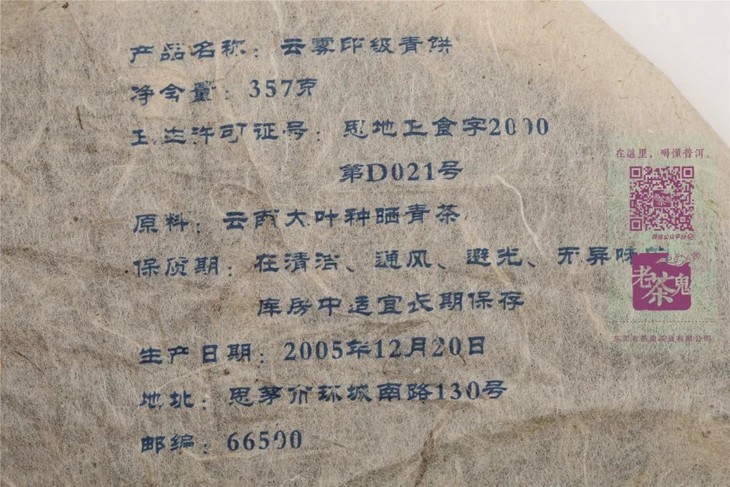 产品名称：云雾印级青饼
净含量：357克
卫生许可证号：思地卫食字2000
第D021号
原料：云南大叶种晒青茶
保质期：在清洁、通风、避光、无异味的
库房中适宜长期保存
生产日期：2005年12月20日
地址：思茅市环城南路130号
邮编：66500
在這里，喝懂普洱。
老茶鬼